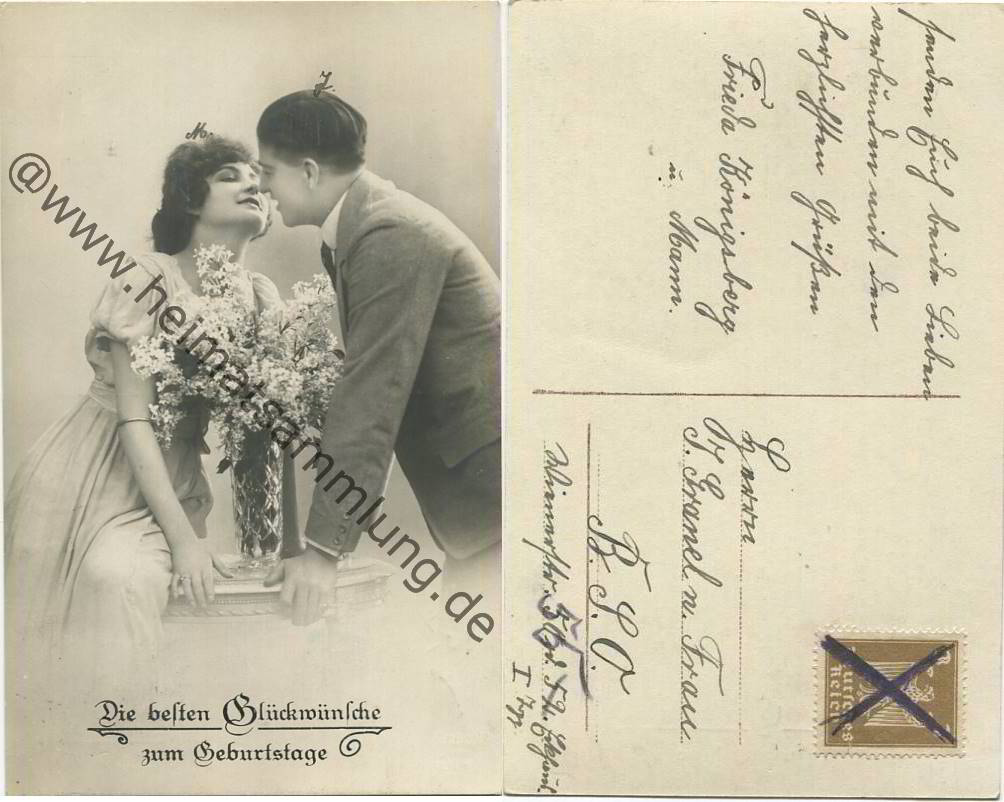 J.
M.
@www.heimatsammlung.de
Die besten Glückwünsche
zum Geburtstage
senden Euch beide Lieben
verbunden mit den
herzlichsten Grüßen
Frieda Königsberg
u. Mann.
Herrn
u. Frau
B. S. O.
Wienerstr.
I
Deutsches
Reich